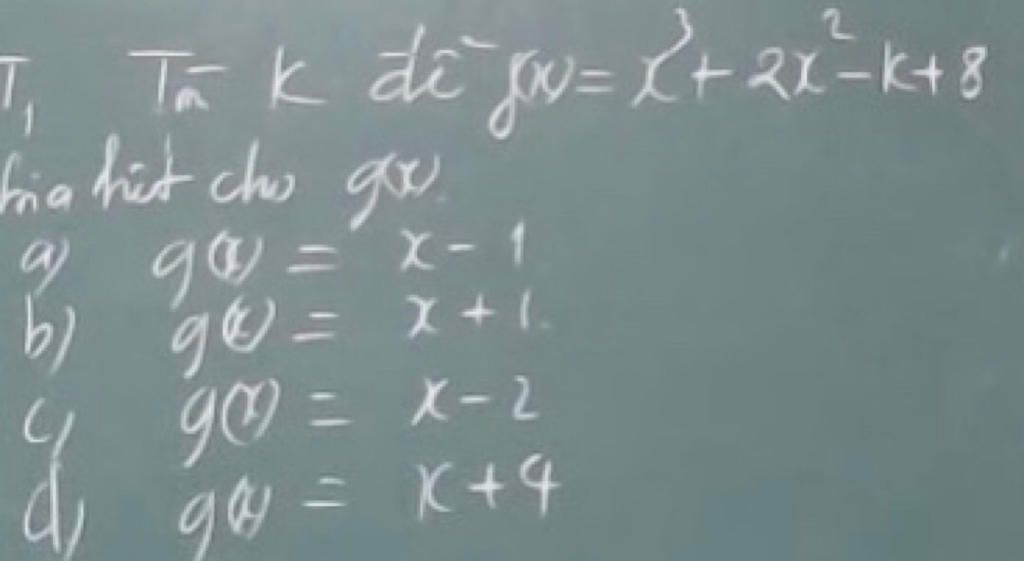 T₁ Tìm K để f(x) = x³ + 2x² - K + 8
chia hết cho g(x).
a) g(x) = x - 1
b) g(x) = x + 1.
c) g(x) = x - 2
d) g(x) = x + 4